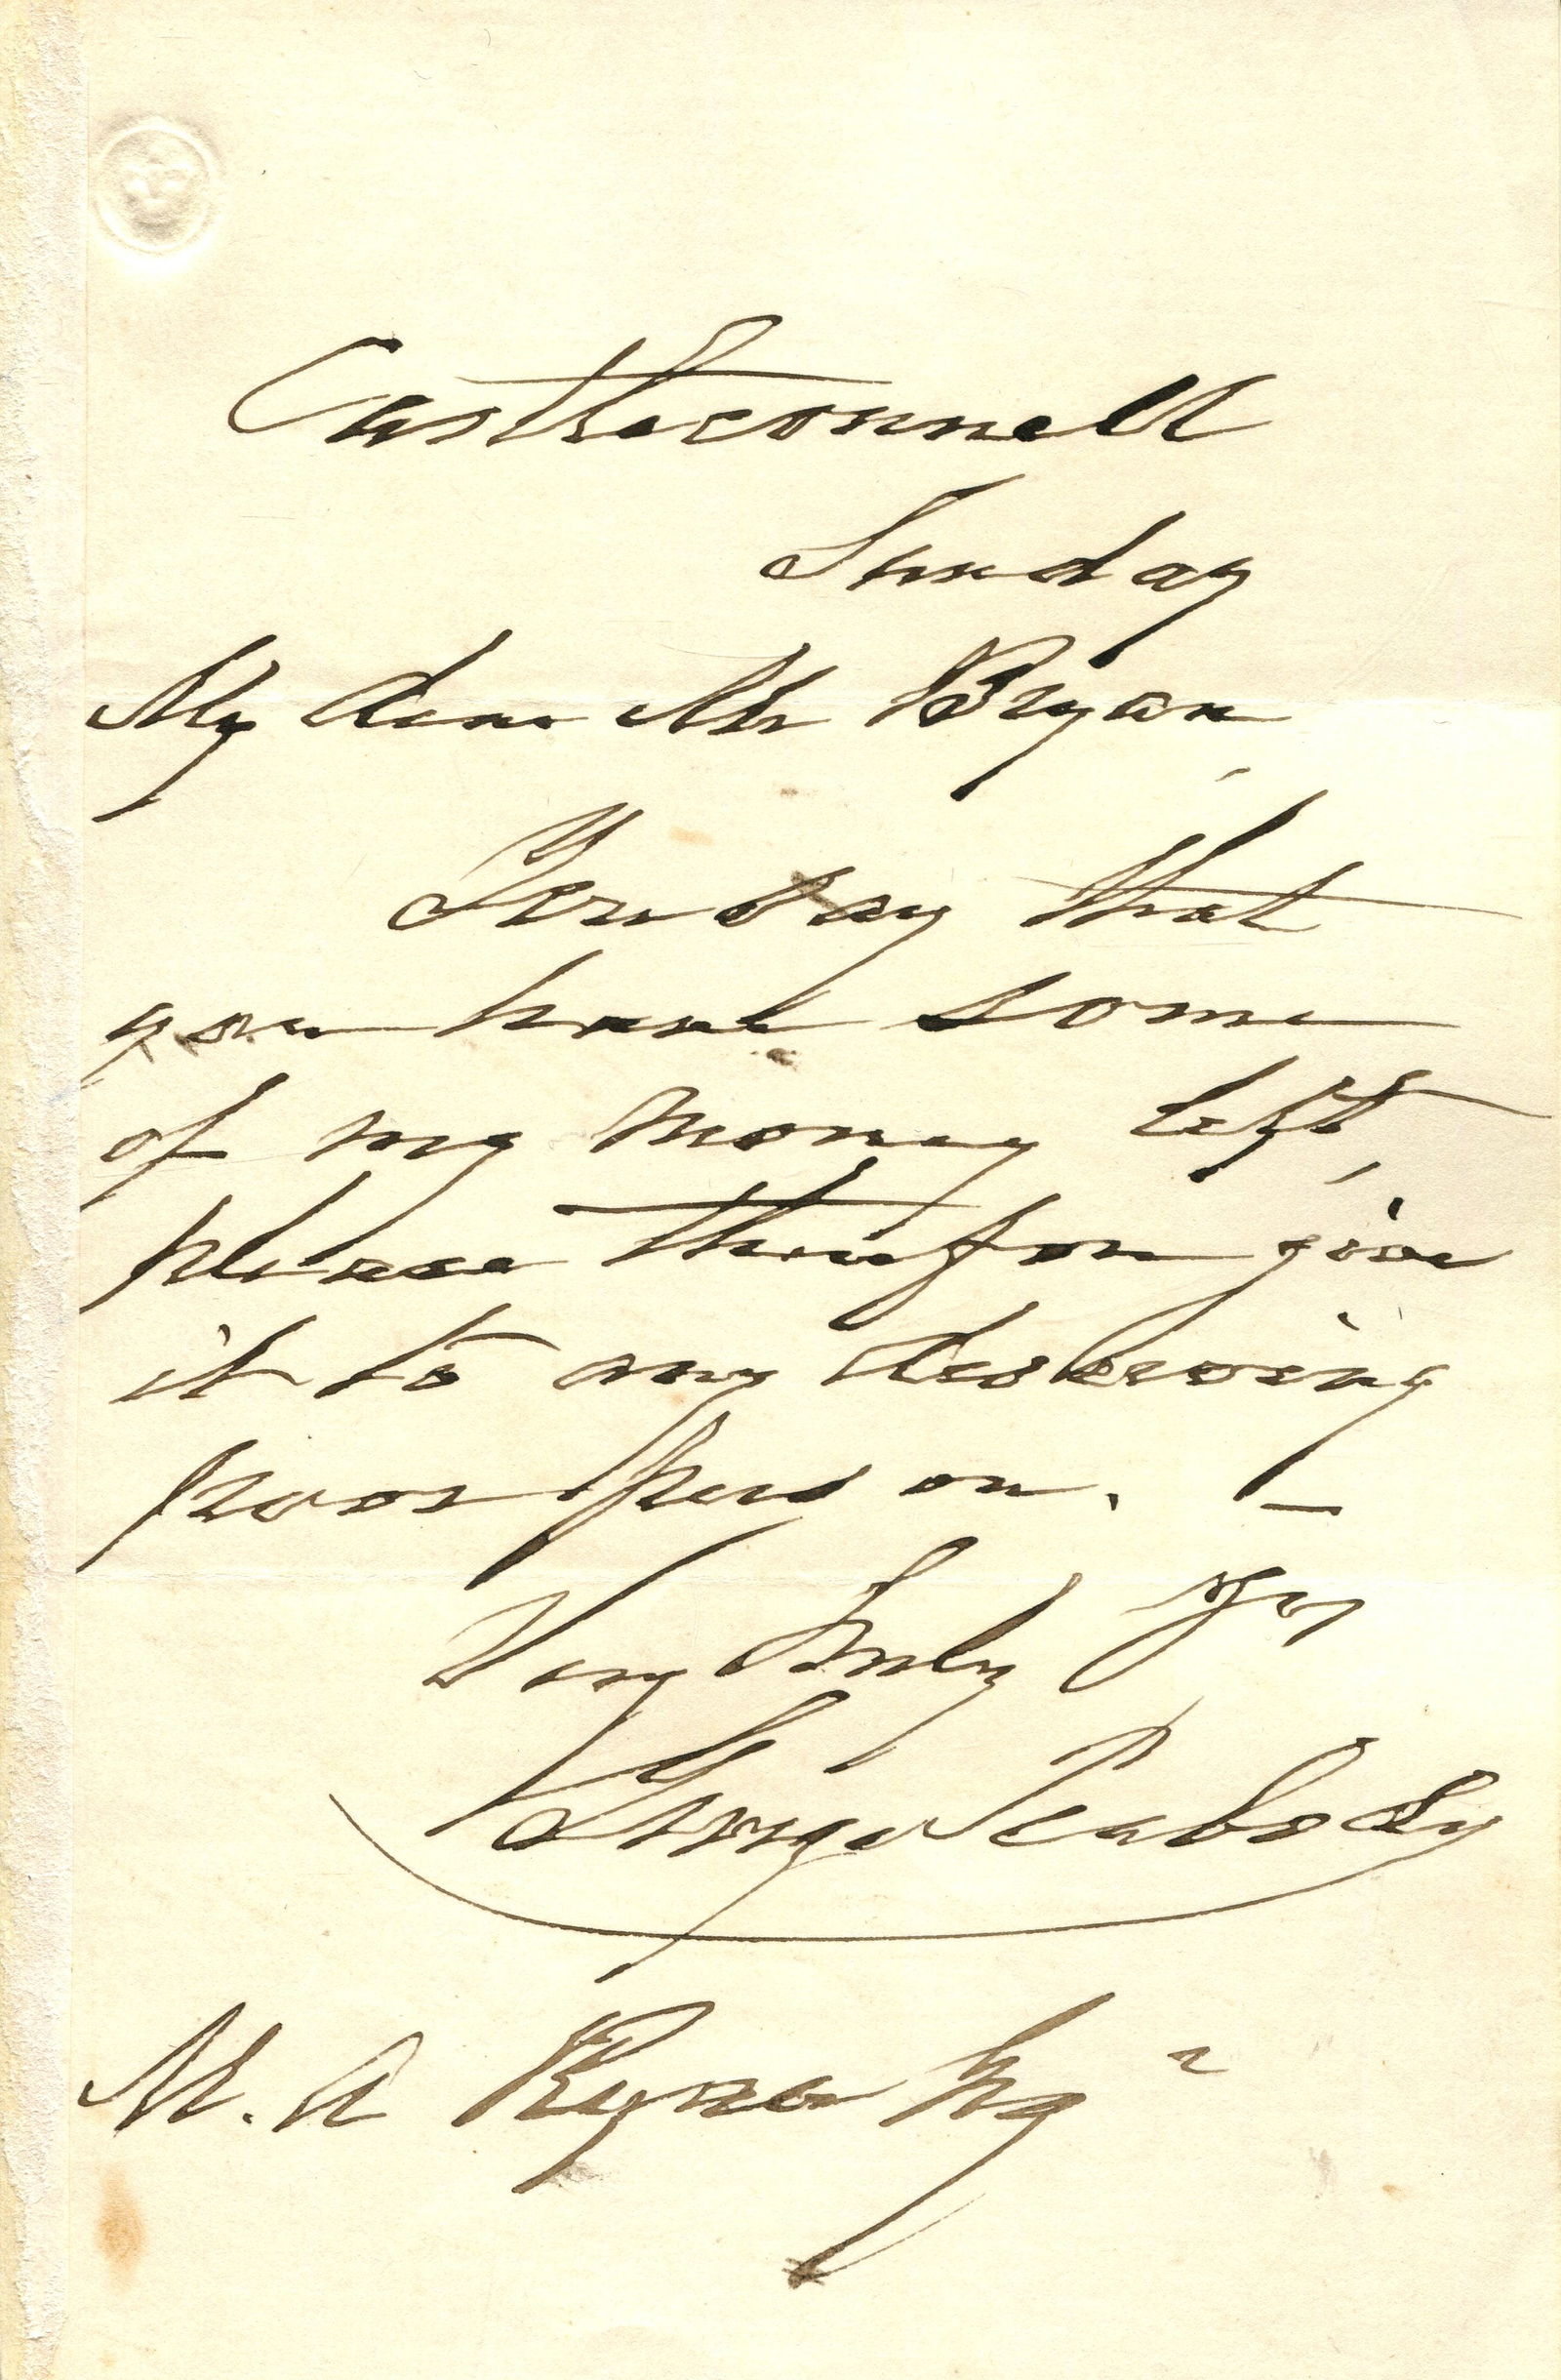 Castleconnell
Sunday
My dear Mr Bryan
You say that
you have some
of my money left,
please therefore give
it to any deserving
poor person. —
Very truly Yrs
George Peabody
M. A